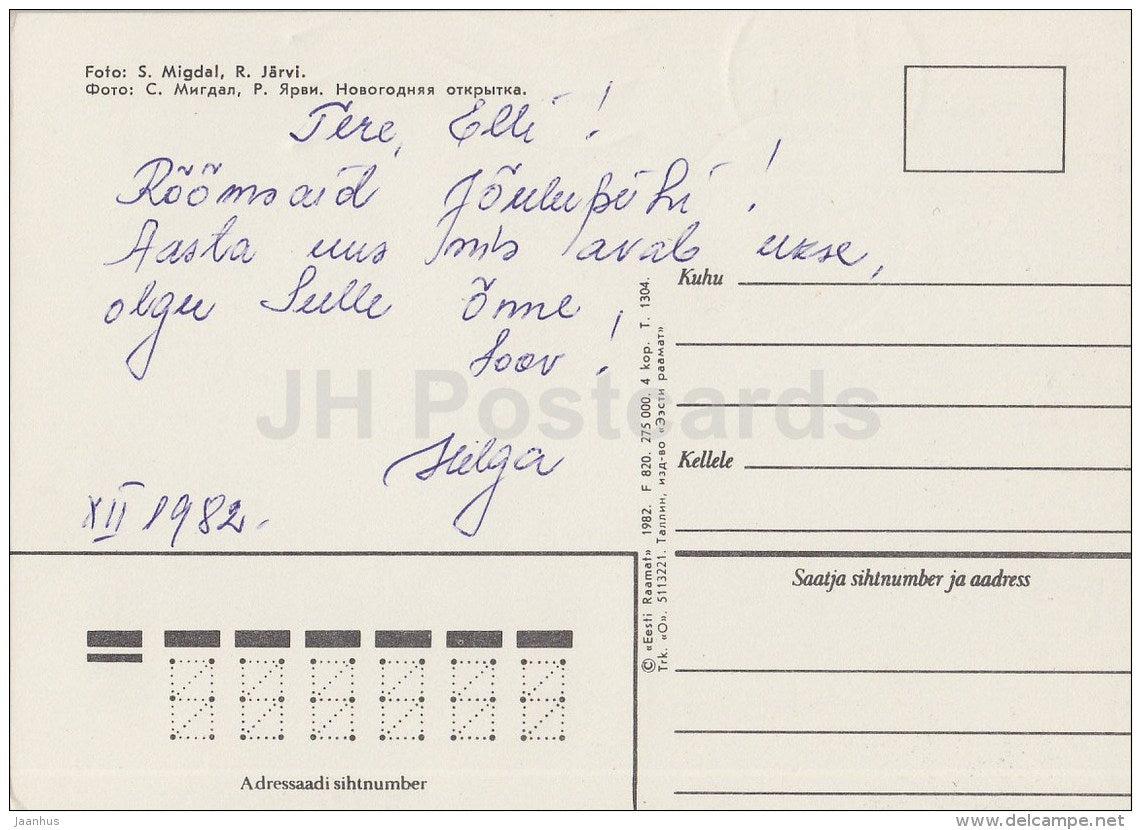 Foto: S. Migdal, R. Järvi.
Фото: С. Мигдал, Р. Ярви. Новогодняя открытка.
Tere, Elli!
Rõõmsaid Jõulupühi!
Aasta uus mis avab ukse,
olgu Sulle õnne
soov!
Helga
XII 1982.
Kuhu
Kellele
Saatja sihtnumber ja aadress
© «Eesti Raamat» 1982. F 820. 275 000. 4 kop. T. 1304.
Trk. «O». 5113221. Таллин, изд-во «Ээсти раамат»
Adressaadi sihtnumber
JH Postcards
Jaanhus
www.delcampe.net